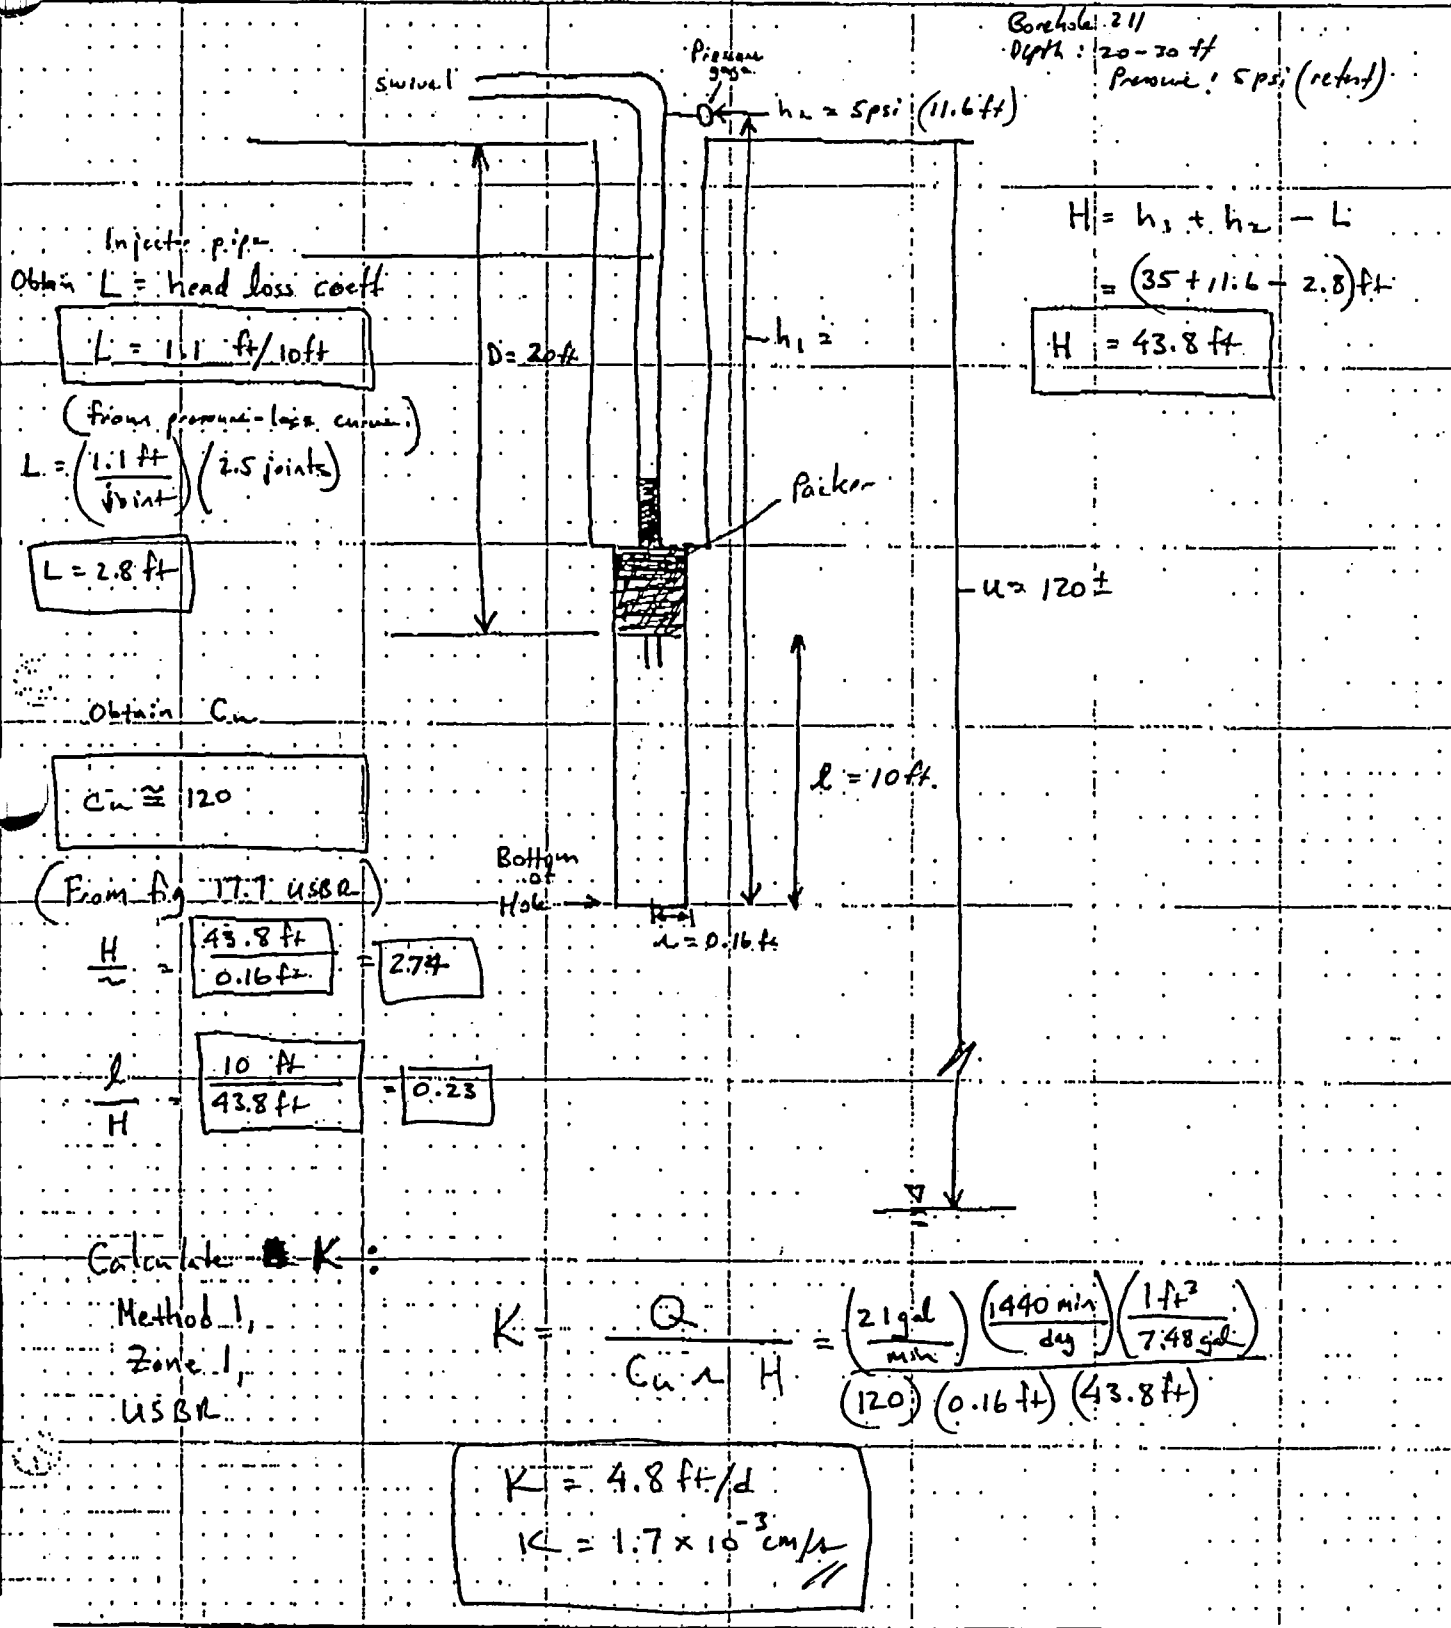 Borehole 211
Depth : 20-30 ft
Pressure : 5 psi (retest)
Pressure
gage
swivel
h₂ = 5psi (11.6ft)
H = h₁ + h₂ - L
= (35 + 11.6 - 2.8)ft
H = 43.8 ft
Inject. pipe
Obtain L = head loss coeff
L = 1.1 ft/10ft
(from pressure-loss curve.)
L = (1.1 ft / joint) (2.5 joints)
L = 2.8 ft
D = 20ft
h₁ =
Packer
U = 120 ±
l = 10 ft.
Obtain Cu
Cu ≅ 120
(From fig 17.7 USBR)
Bottom
of
Hole
r = 0.16 ft
H/r = 43.8 ft / 0.16 ft = 274
l/H = 10 ft / 43.8 ft = 0.23
Calculate K :
Method 1,
Zone 1,
USBR
K = Q / Cu r H = (21 gal / min) (1440 min / day) (1 ft³ / 7.48 gal) / (120) (0.16 ft) (43.8 ft)
K = 4.8 ft/d
K = 1.7 × 10⁻³ cm/s